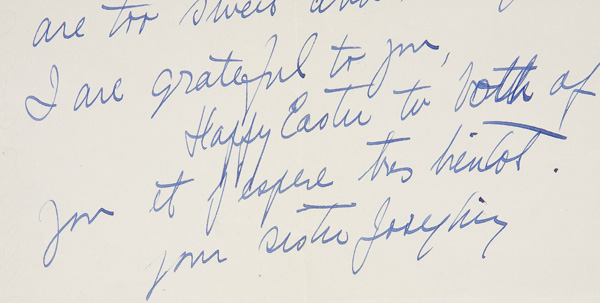 are too
I are grateful to you,
Happy Easter to both of
you et j'espere tres bientot.
your sister Josephine